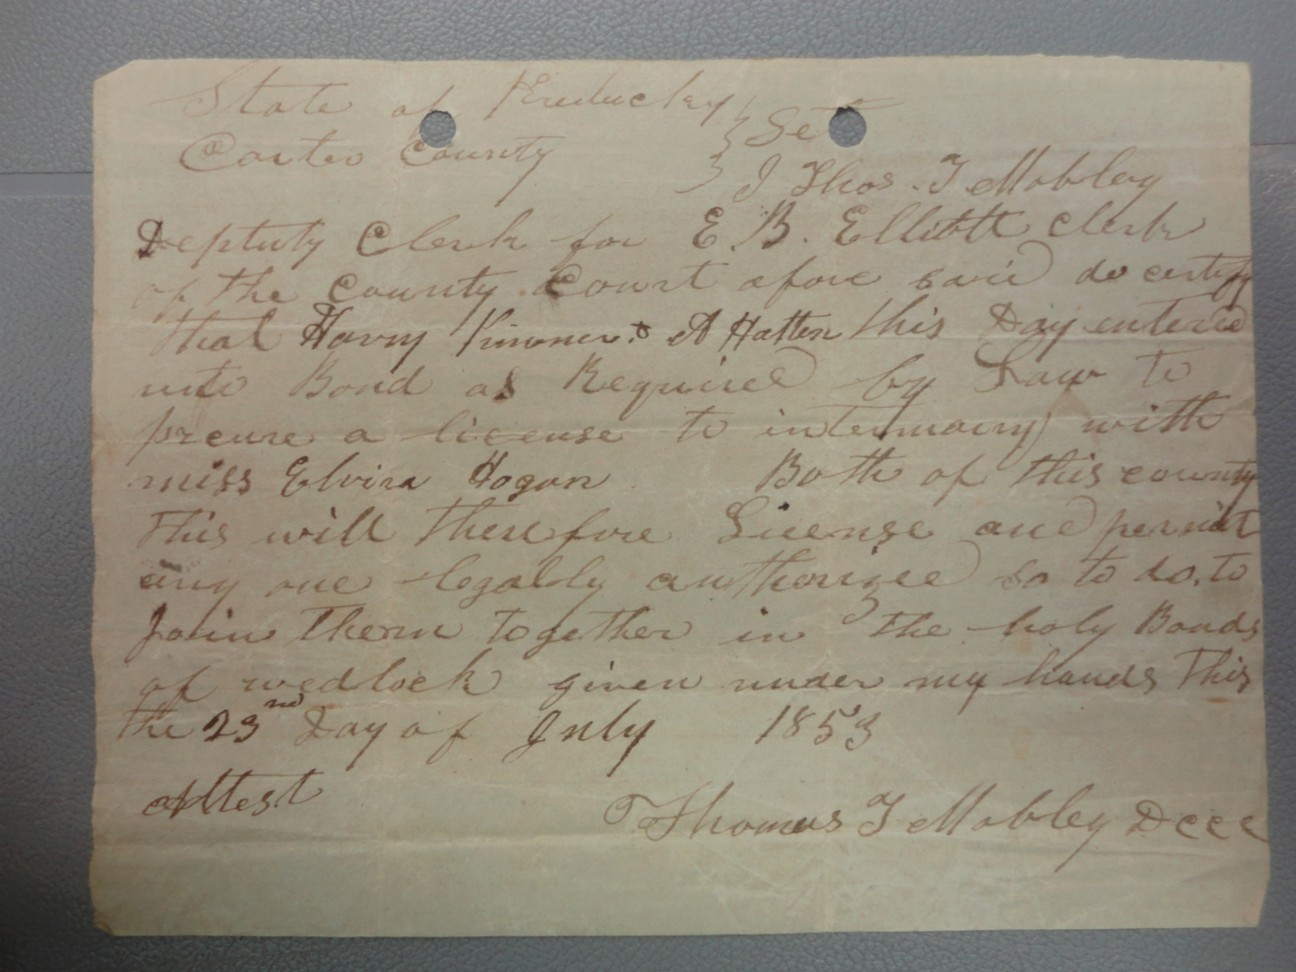 State of Kentucky } Sct
Carter County }
I Thos. T Mobley
Deptuty Clerk for E. B. Elliott Clerk
of the County Court afore said do certify
that Harvy Kinner & A Hatten this Day entered
into Bond as Required by Law to
precure a license to intermarry with
miss Elvira Hogan Both of this county
This will therefore License and permit
any one legally authorized so to do, to
Join them together in the holy Bonds
of wedlock given under my hands this
the 23nd Day of July 1853
Attest
Thomas T Mobley DCCC